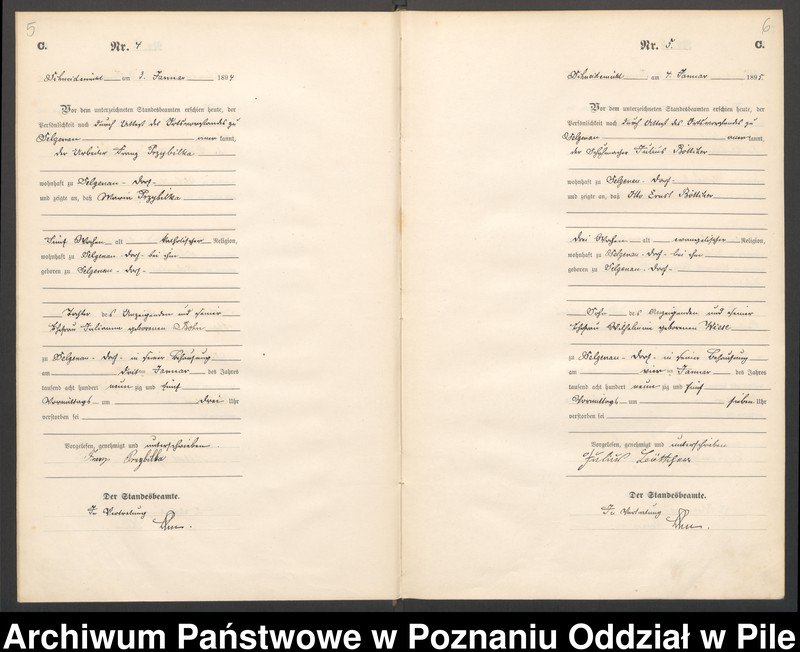 5
C.
Nr. 4
Schneidemühl am 3. Januar 1895
Vor dem unterzeichneten Standesbeamten erschien heute, der
Persönlichkeit nach durch Attest des Ortsvorstandes zu
Selgenau anerkannt,
der Arbeiter Franz Przybilka
wohnhaft zu Selgenau-Dorf
und zeigte an, daß Maria Przybilka
fünf Wochen alt katholischer Religion,
wohnhaft zu Selgenau-Dorf bei ihm
geboren zu Selgenau-Dorf
Tochter des Anzeigenden und seiner
Ehefrau Julianna geborenen Bohn
zu Selgenau-Dorf in seiner Behausung
am dritten Januar des Jahres
tausend acht hundert neunzig und fünf
Vormittags um drei Uhr
verstorben sei
Vorgelesen, genehmigt und unterschrieben
Franz Przybilka
Der Standesbeamte.
In Vertretung
6
Nr. 5.
C.
Schneidemühl am 4. Januar 1895.
Vor dem unterzeichneten Standesbeamten erschien heute, der
Persönlichkeit nach durch Attest des Ortsvorstandes zu
Selgenau anerkannt,
der Schuhmacher Julius Böttcher
wohnhaft zu Selgenau-Dorf
und zeigte an, daß Otto Ernst Böttcher
drei Wochen alt evangelischer Religion,
wohnhaft zu Selgenau-Dorf bei ihm
geboren zu Selgenau-Dorf
Sohn des Anzeigenden und seiner
Ehefrau Wilhelmine geborenen Wiese
zu Selgenau-Dorf in seiner Behausung
am vierten Januar des Jahres
tausend acht hundert neunzig und fünf
Vormittags um sieben Uhr
verstorben sei
Vorgelesen, genehmigt und unterschrieben
Julius Böttcher
Der Standesbeamte.
In Vertretung
Archiwum Państwowe w Poznaniu Oddział w Pile